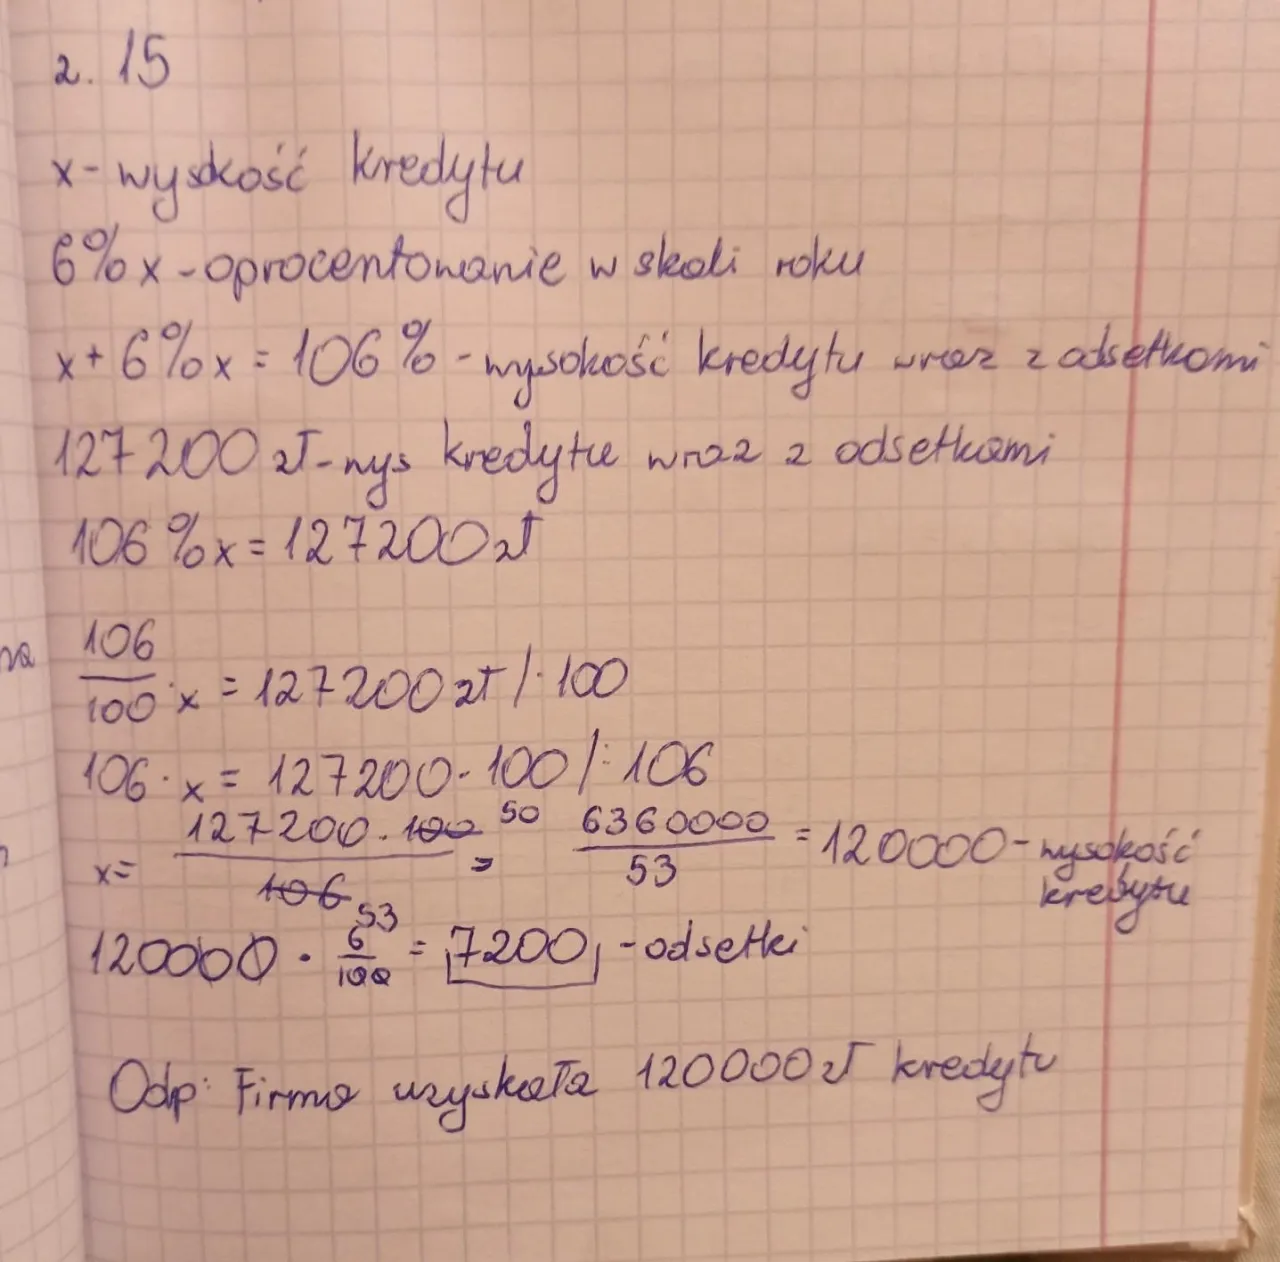 z. 15
x - wyskość kredytu
6% x - oprocentowanie w skali roku
x + 6% x = 106% - wysokość kredytu wraz z odsetkami
127200 zł - wys kredytu wraz z odsetkami
106% x = 127200 zł
106/100 · x = 127200 zł /· 100
106 · x = 127200 · 100 /: 106
x = 127200 · 100 50 / 106 53 = 6360000/53 = 120000 - wysokość kredytu
120000 · 6/100 = 7200 - odsetki
Odp: Firma uzyskała 120000 zł kredytu